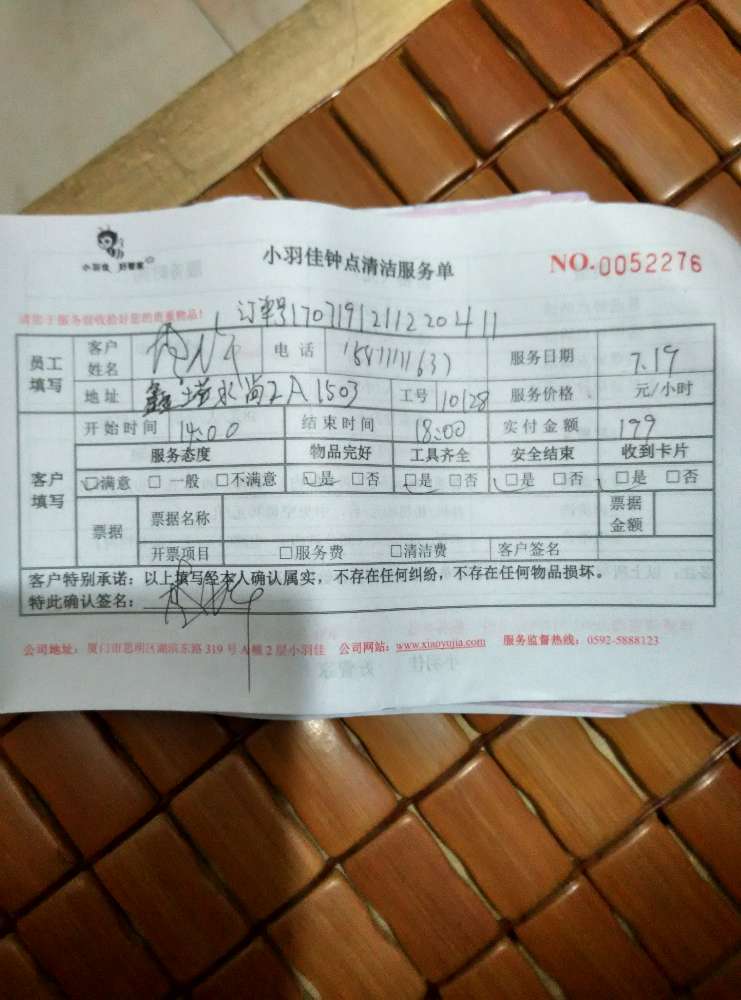 小羽佳 好管家
小羽佳钟点清洁服务单
NO.0052276
请您于服务前收拾好您的贵重物品!
订单号1707191211220411
员工填写 客户姓名 电话 服务日期 7.19
地址 2A1503 工号 10128 服务价格 元/小时
客户填写 开始时间 14:00 结束时间 18:00 实付金额 199
服务态度 物品完好 工具齐全 安全结束 收到卡片
□满意 □一般 □不满意 □是 □否 □是 □否 □是 □否 □是 □否
票据 票据名称 票据金额
开票项目 □服务费 □清洁费 客户签名
客户特别承诺:以上填写经本人确认属实,不存在任何纠纷,不存在任何物品损坏。
特此确认签名:
公司地址:厦门市思明区湖滨东路319号A幢2层小羽佳 公司网站:www.xiaoyujia.com 服务监督热线:0592-5888123